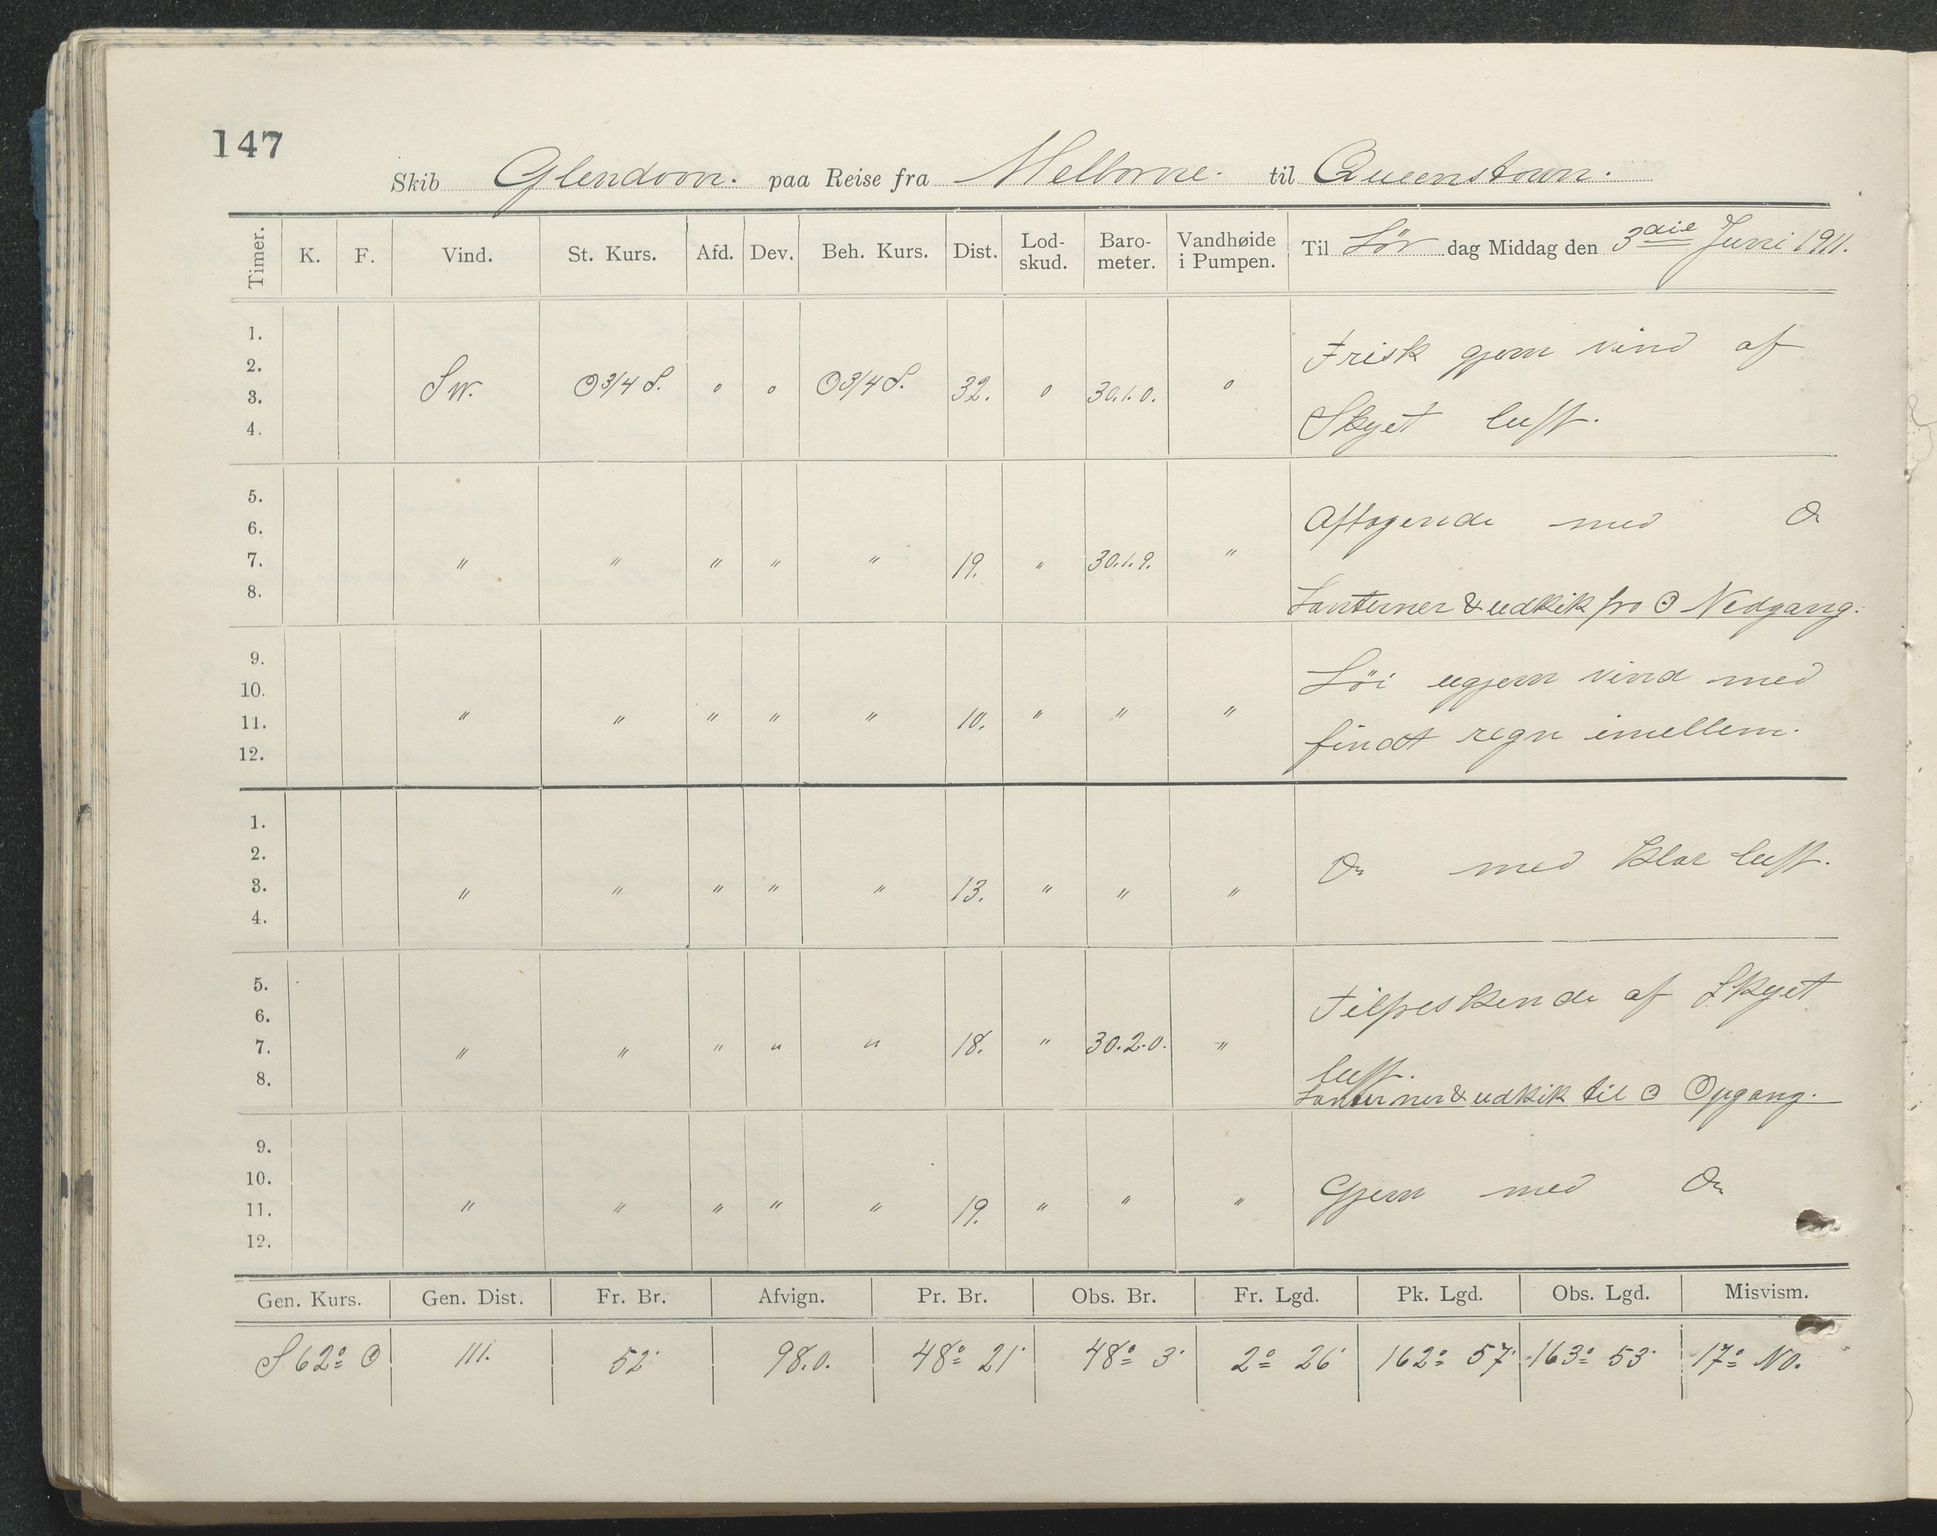 147
Skib Glendoon. paa Reise fra Melborne. til Queenstown.
Timer. K. F. Vind. St. Kurs. Afd. Dev. Beh. Kurs. Dist. Lod-skud. Baro-meter. Vandhøide i Pumpen. Til Lör dag Middag den 3die Juni 1911.
1.
2.
3. SW. O 3/4 S. o o O 3/4 S. 32. o 30.1.0. o
4.
Frisk gjem vind af
Skyet luft.
5.
6.
7. " " " " " 19. " 30.1.9. "
8.
Aftagende med Do
Lanterner & udkik fra ☉ Nedgang.
9.
10.
11. " " " " " 10. " " "
12.
Löi ugjem vind med
findt regn imellem.
1.
2.
3. " " " " " 13. " " "
4.
Do med klar luft.
5.
6.
7. " " " " " 18. " 30.2.0. "
8.
Tilfreskende af Skyet
luft.
Lanterner & udkik til ☉ Opgang.
9.
10.
11. " " " " " 19. " " "
12.
Gjem med Do
Gen. Kurs. Gen. Dist. Fr. Br. Afvign. Pr. Br. Obs. Br. Fr. Lgd. Pk. Lgd. Obs. Lgd. Misvism.
S 62° O 111. 52' 98.0. 48° 21' 48° 3' 2° 26' 162° 57' 163° 53' 17° NO.